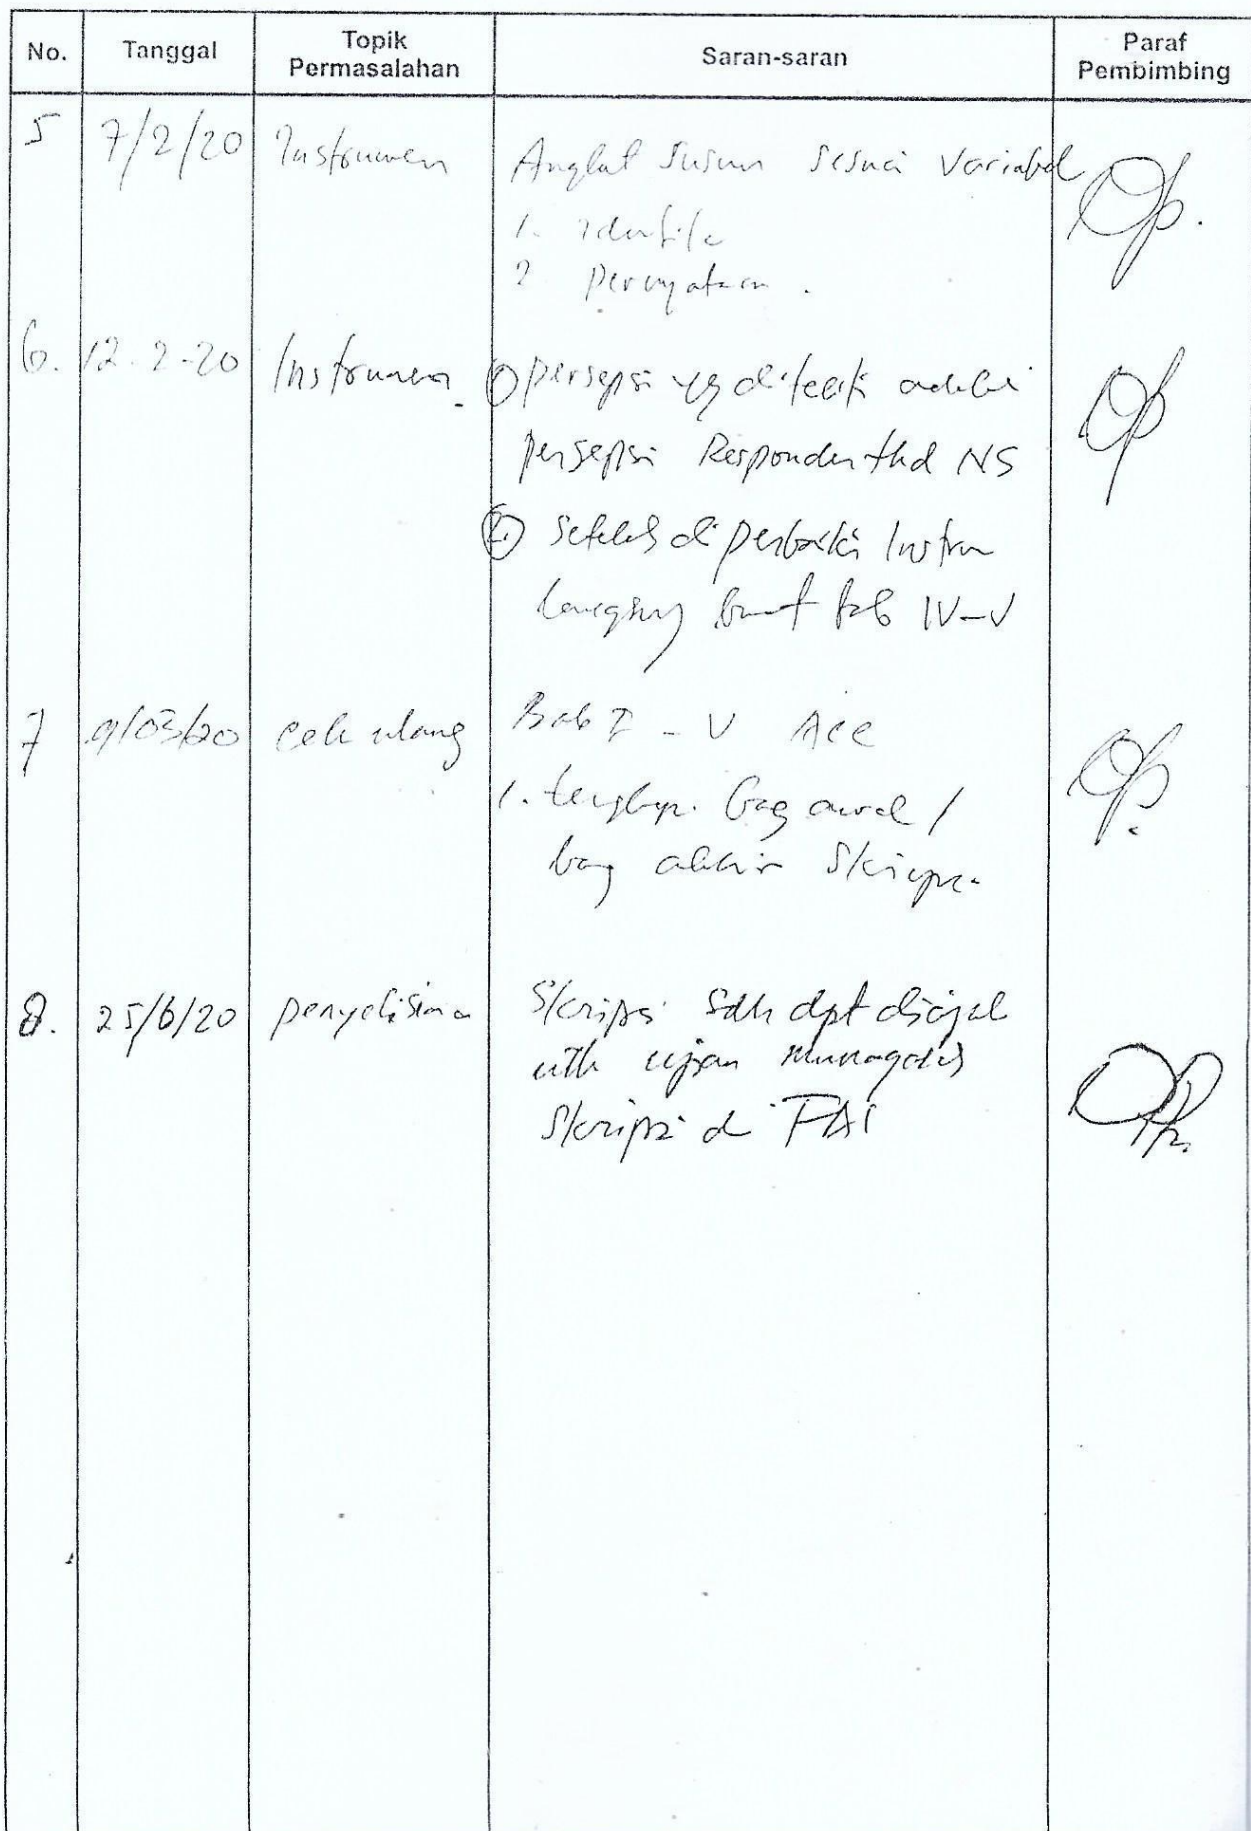 No. Tanggal Topik Permasalahan Saran-saran Paraf Pembimbing
5 7/2/20 Instrumen Angket susun sesuai variabel
1.
2 Pernyataan.
6. 12-2-20 Instrumen ① persepsi yg diteliti adalah
persepsi Responden thd NS
② Setelah diperbaiki Instrn
langsung buat bab IV-V
7 9/03/20 cek ulang Bab I - V Acc
1. lengkapi bag awal /
bag akhir Skripsi.
8. 25/6/20 Skripsi sdh dpt
utk ujian munaqosis
Skripsi di FAI